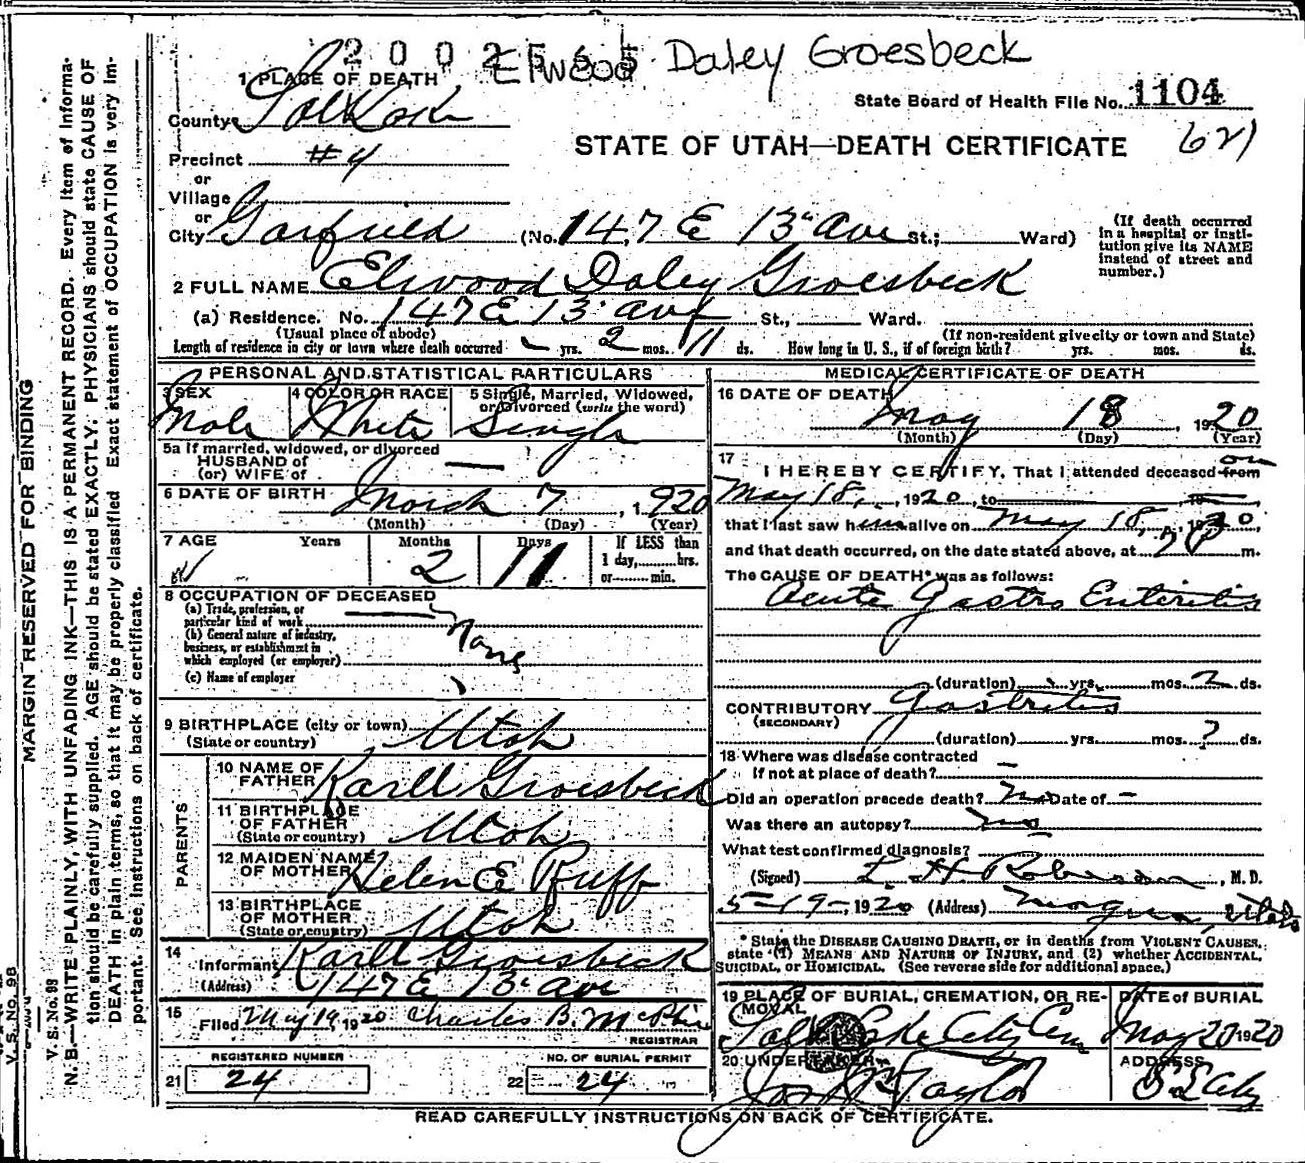 2 0 0 2 5 5 5 Elwood Daley Groesbeck
1 PLACE OF DEATH
State Board of Health File No. 1104
County Salt Lake
STATE OF UTAH—DEATH CERTIFICATE 621
Precinct #4
or
Village
or
City Garfield (No. 147 E 13th Ave St.; Ward)
(If death occurred in a hospital or institution give its NAME instead of street and number.)
2 FULL NAME Elwood Daley Groesbeck
(a) Residence. No. 147 E 13 ave St., Ward.
(Usual place of abode) (If non-resident give city or town and State)
Length of residence in city or town where death occurred - yrs. 2 mos. 11 ds. How long in U. S., if of foreign birth? yrs. mos. ds.
PERSONAL AND STATISTICAL PARTICULARS
3 SEX 4 COLOR OR RACE 5 Single, Married, Widowed, or Divorced (write the word)
Male White Single
5a If married, widowed, or divorced
HUSBAND of
(or) WIFE of —
6 DATE OF BIRTH March 7, 1920
(Month) (Day) (Year)
7 AGE Years Months Days If LESS than
2 11 1 day, hrs.
or min.
8 OCCUPATION OF DECEASED
(a) Trade, profession, or
particular kind of work
(b) General nature of industry,
business, or establishment in
which employed (or employer)
None
(c) Name of employer
9 BIRTHPLACE (city or town)
(State or country) Utah
PARENTS
10 NAME OF FATHER Karll Groesbeck
11 BIRTHPLACE OF FATHER
(State or country) Utah
12 MAIDEN NAME OF MOTHER Helen E Ruff
13 BIRTHPLACE OF MOTHER
(State or country) Utah
14 Informant Karll Groesbeck
(Address) 147 E 13th ave
15 Filed May 19 1920 Charles B. McPhie
REGISTRAR
REGISTERED NUMBER NO. OF BURIAL PERMIT
21 24 22 24
MEDICAL CERTIFICATE OF DEATH
16 DATE OF DEATH
May 18, 1920
(Month) (Day) (Year)
17 I HEREBY CERTIFY, That I attended deceased from on
May 18, 1920, to 19
that I last saw him alive on May 18, 1920,
and that death occurred, on the date stated above, at 7 P m.
The CAUSE OF DEATH* was as follows:
Acute Gastro Enteritis
(duration) yrs. mos. 2 ds.
CONTRIBUTORY Gastritis
(SECONDARY)
(duration) yrs. mos. ? ds.
18 Where was disease contracted
if not at place of death? —
Did an operation precede death? no Date of —
Was there an autopsy? no
What test confirmed diagnosis?
(Signed) L. H. Roberson, M. D.
5-19-, 1920 (Address) Magna, Utah
* State the DISEASE CAUSING DEATH, or in deaths from VIOLENT CAUSES,
state (1) MEANS AND NATURE OF INJURY, and (2) whether ACCIDENTAL,
SUICIDAL, or HOMICIDAL. (See reverse side for additional space.)
19 PLACE OF BURIAL, CREMATION, OR REMOVAL DATE of BURIAL
Salt Lake City Cem May 20 1920
20 UNDERTAKER ADDRESS
Jos Wm Taylor S L City
READ CAREFULLY INSTRUCTIONS ON BACK OF CERTIFICATE.
MARGIN RESERVED FOR BINDING
V. S. No. 98
N. B.—WRITE PLAINLY, WITH UNFADING INK—THIS IS A PERMANENT RECORD. Every item of informa-
tion should be carefully supplied. AGE should be stated EXACTLY. PHYSICIANS should state CAUSE OF
DEATH in plain terms, so that it may be properly classified. Exact statement of OCCUPATION is very im-
portant. See instructions on back of certificate.